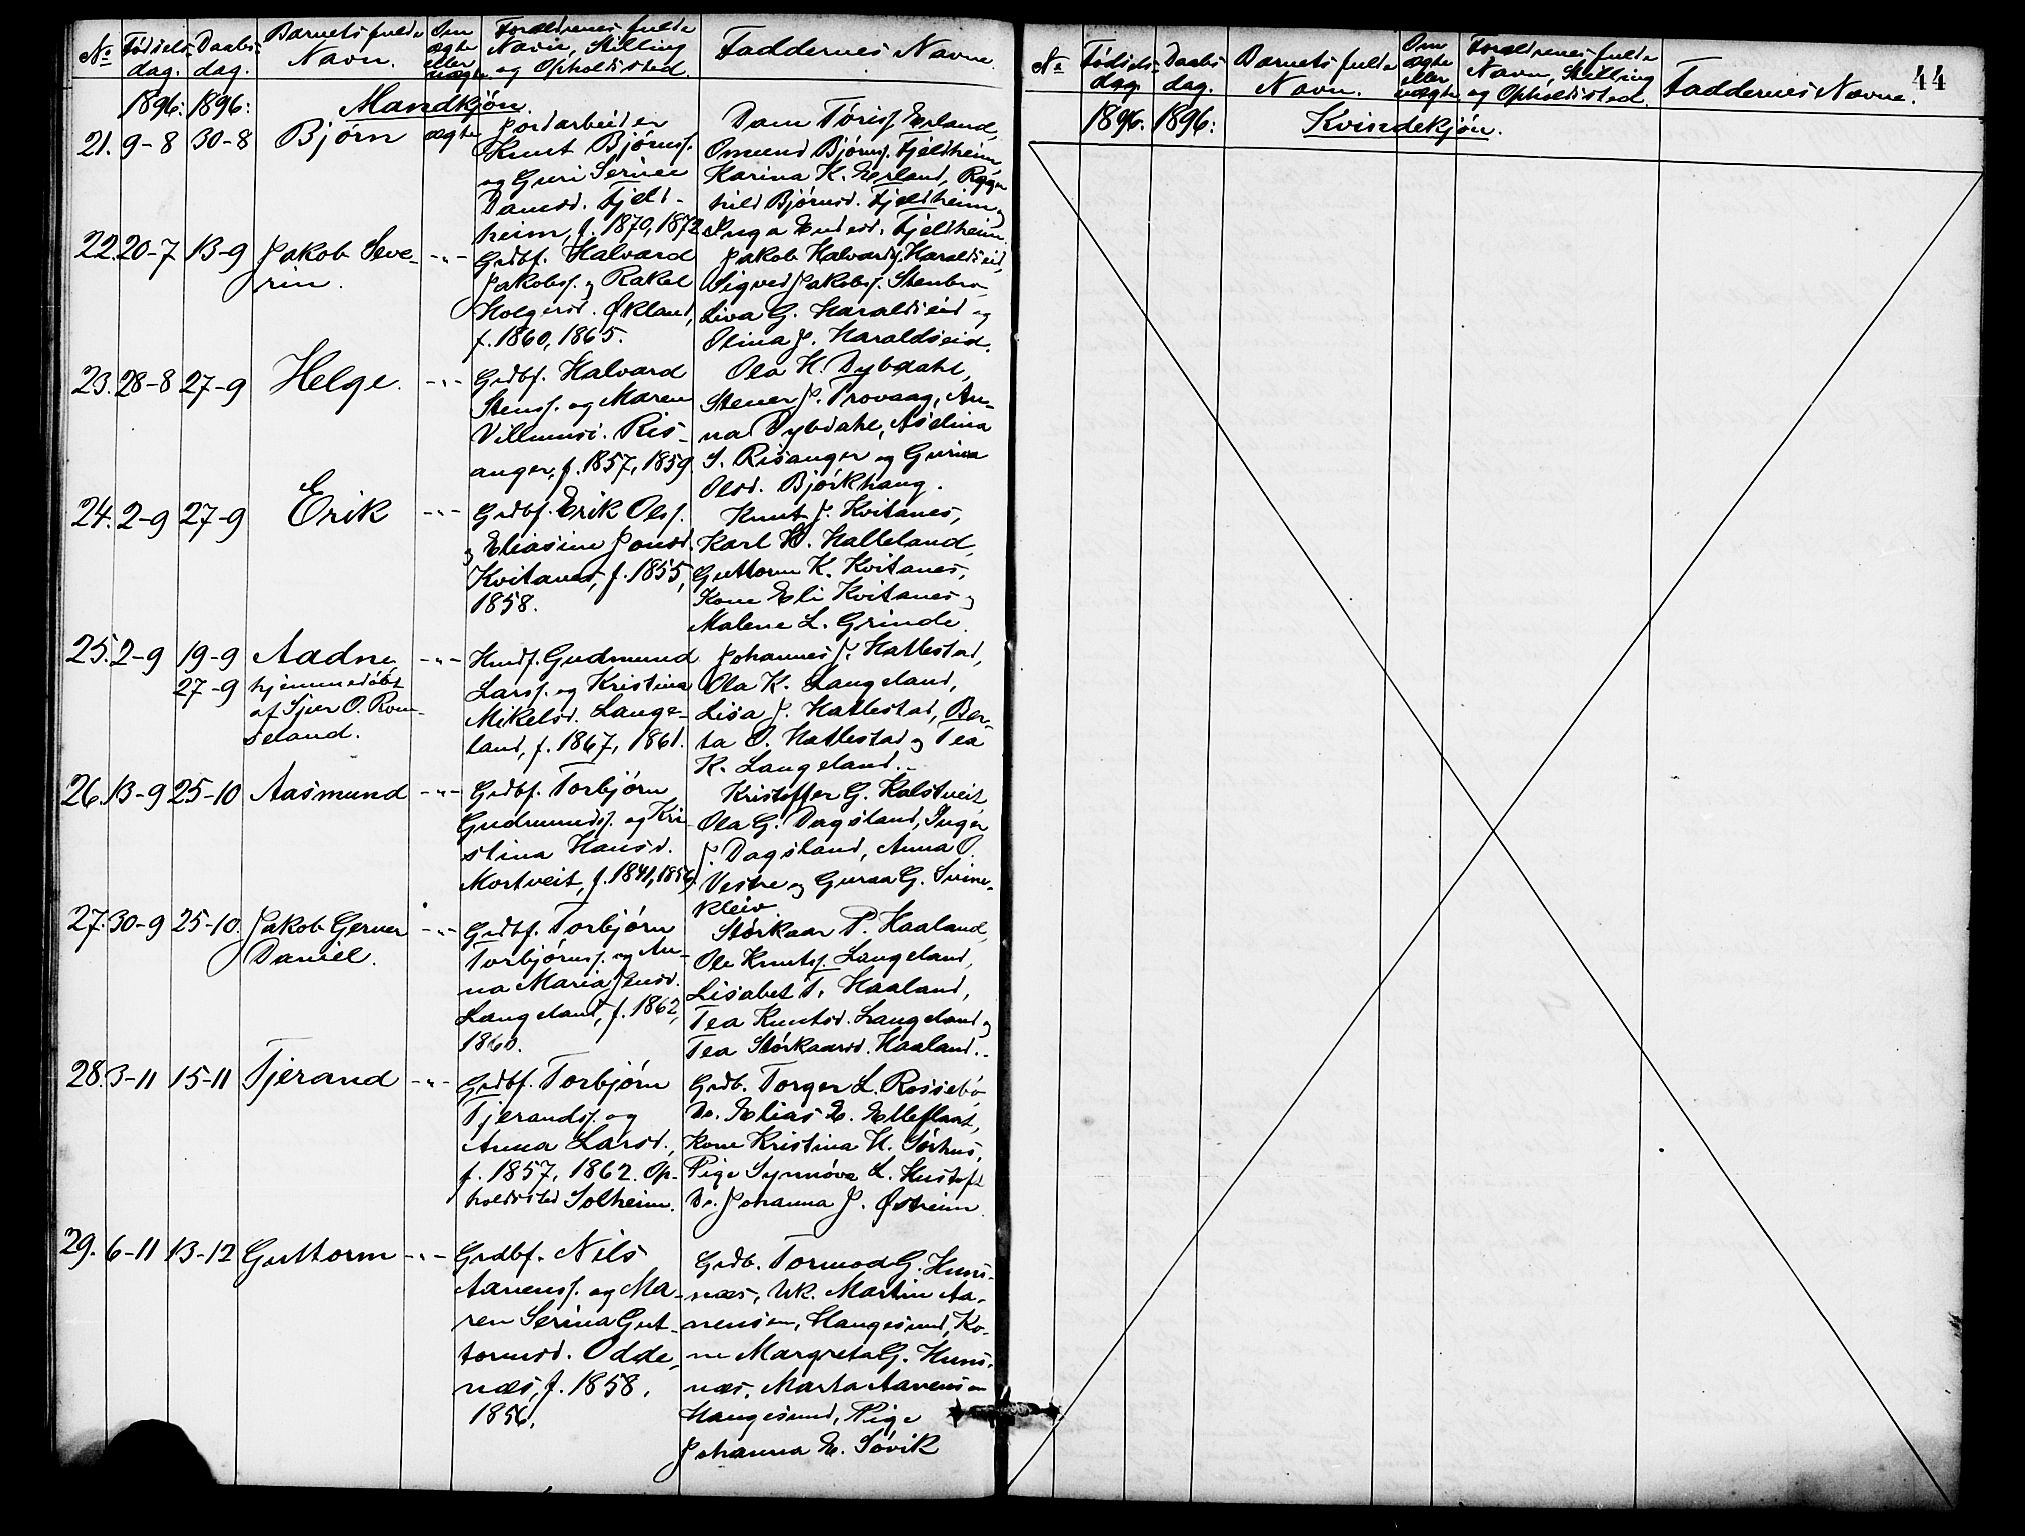 No Fødsels- dag. Daabs- dag. Barnets fulde Navn. Om ægte eller uægte. Forældrenes fulde Navn, Stilling og Opholdssted. Faddernes Navne.
1896. 1896: Mandkjøn.
21. 9-8 30-8 Bjørn ægte Jordarbeider
Knut Bjørnss.
og Guri Serine
Danesd. Fjeld-
heim, f. 1870, 1872
Dane Tøriss. Erland,
Omund Bjørnss. Fjeldheim,
Karina K. Erland, Ragn
hild Bjørnsd. Fjeldheim og
Inga Endesd. Fjeldheim.
22. 20-7 13-9 Jakob Seve-
rin. -"- Grdbf. Halvard
Jakobss. og Rakel
Holgersd. Økland,
f. 1860, 1865.
Jakob Halvards. Haraldseid,
Sigved Jakobss. Stenbro
Liva G. Haraldseid og
Olina J. Haraldseid.
23. 28-8 27-9 Helge. -"- Grdbf. Halvard
Stenss. og Maren
Villumsd. Ris-
anger, f. 1857, 1859.
Ola H. Dybdahl,
Stener J. Trovaag, An-
na Dybdahl, Aselina
S. Risanger og Gurina
Olsd. Bjørkhaug.
24. 2-9 27-9 Erik -"- Grdbf. Erik Olss.
og Eliasine Jonsd.
Kvitanes, f. 1855,
1858.
Knut J. Kvitanes,
Karl H. Halleland,
Guttorm K. Kvitanes,
Kone Eli Kvitanes og
Malene L. Grinde.
25. 2-9 19-9 Aadne, -"- Husf. Gudmund
27-9 hjemmedøbt
af Sjur O. Rom-
seland.
Larss. og Kristina
Mikelsd. Lange-
land, f. 1867, 1861.
Johannes J. Hatlestad,
Ola K. Langeland,
Lisa J. Hatlestad, Ber-
ta O. Hatlestad og Tea
K. Langeland.
26. 13-9 25-10 Aasmund -"- Grdbf. Torbjørn
Gudmundss. og Kri-
stina Hansd.
Mortveit, f. 1841, 1856.
Kristoffer G. Kalstveit,
Ola G. Dagsland, Inger
J. Dagsland, Anna O.
Vestre og Guraa G. Svine-
kleiv
27. 30-9 25-10. Jakob Gerner
Daniel. -"- Grdbf. Torbjørn
Torbjørnss. og An-
na Maria Jensd.
Langeland, f. 1862,
1860.
Størkaar P. Haaland,
Ole Knutss. Langeland,
Lisabet T. Haaland,
Tea Knutsd. Langeland og
Tea Størkaarsd. Haaland.
28. 3-11 15-11 Tjerand -"- Grdbf. Torbjørn
Tjerandss. og
Anna Larsd.,
f. 1857, 1862. Op-
holdssted Solheim.
Grdb. Torger L. Rossebø
Do. Elias E. Elleflaat,
Kone Kristina H. Sørhus,
Pige Synnøva L. Hustoft
Do. Johanna J. Østreim.
29. 6-11 13-12 Guttorm -"- Grdbf. Nils
Aanenss. og Ma-
ren Serina Gut-
tormsd. Odde-
næs, f. 1858,
1856.
Grdb. Tormod G. Huns-
næs, Uk. Martin Aa-
nensen, Haugesund, Ko-
ne Margreta G. Huns-
næs, Marta Aanensen
Haugesund, Pige
Johanna E. Søvik
No Fødsels- dag. Daabs- dag. Barnets fulde Navn. Om ægte eller uægte Forældrenes fulde Navn, Stilling og Opholdssted. Faddernes Navne. 44
1896. 1896: Kvindekjøn.